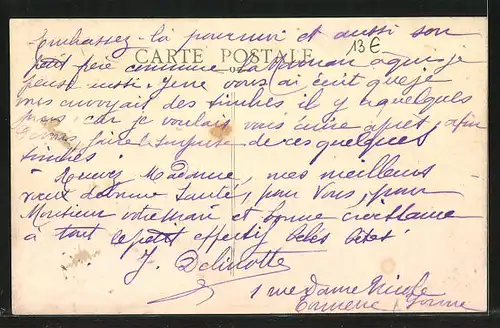 Embrassez-la pour moi et aussi son
13€
CARTE POSTALE
petit frère comme la Maman à qui je
pense aussi. Je ne vous ai écrit que je
des timbres il y a quelques
jours car je voulais vous écrire après, afin
de ces quelques
timbres
Recevez Madame, mes meilleurs
vœux de bonne santé, pour vous, pour
Monsieur votre mari et bonne croissance
à tout le petit effectif
J. Delinotte
1 rue Dame Nicole
Yonne